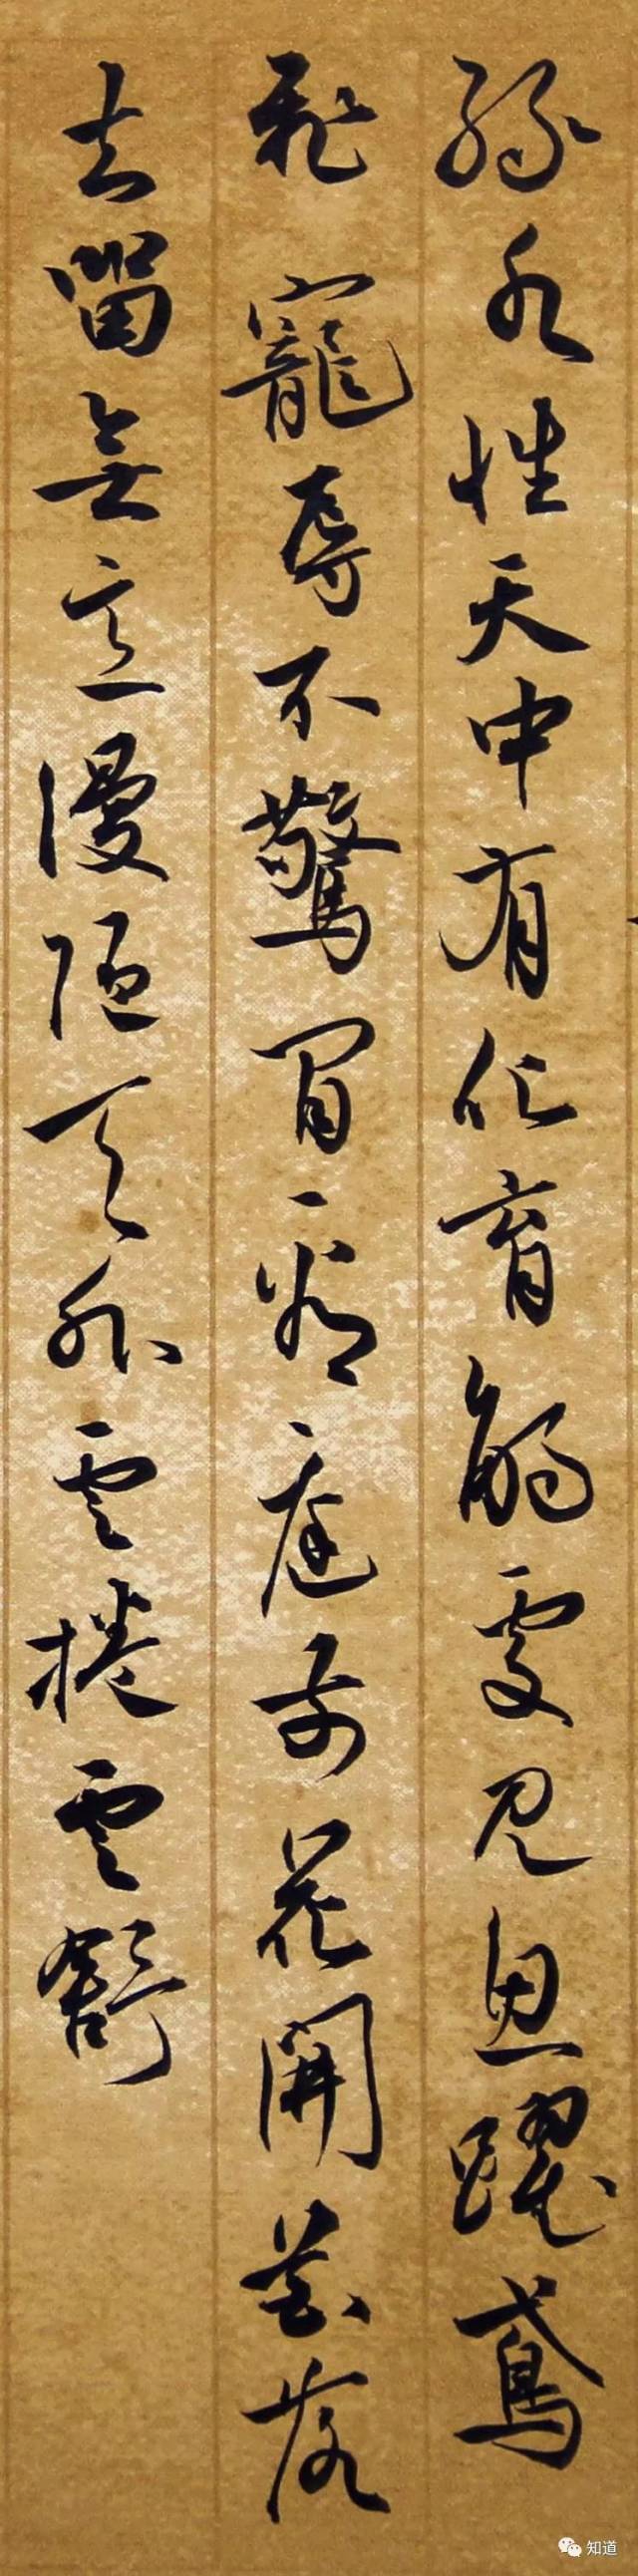 緑水性天中有化育觸處見魚躍鳶
飛寵辱不驚閒看庭前花開花落
去留無意漫隨天外雲捲雲舒
知道